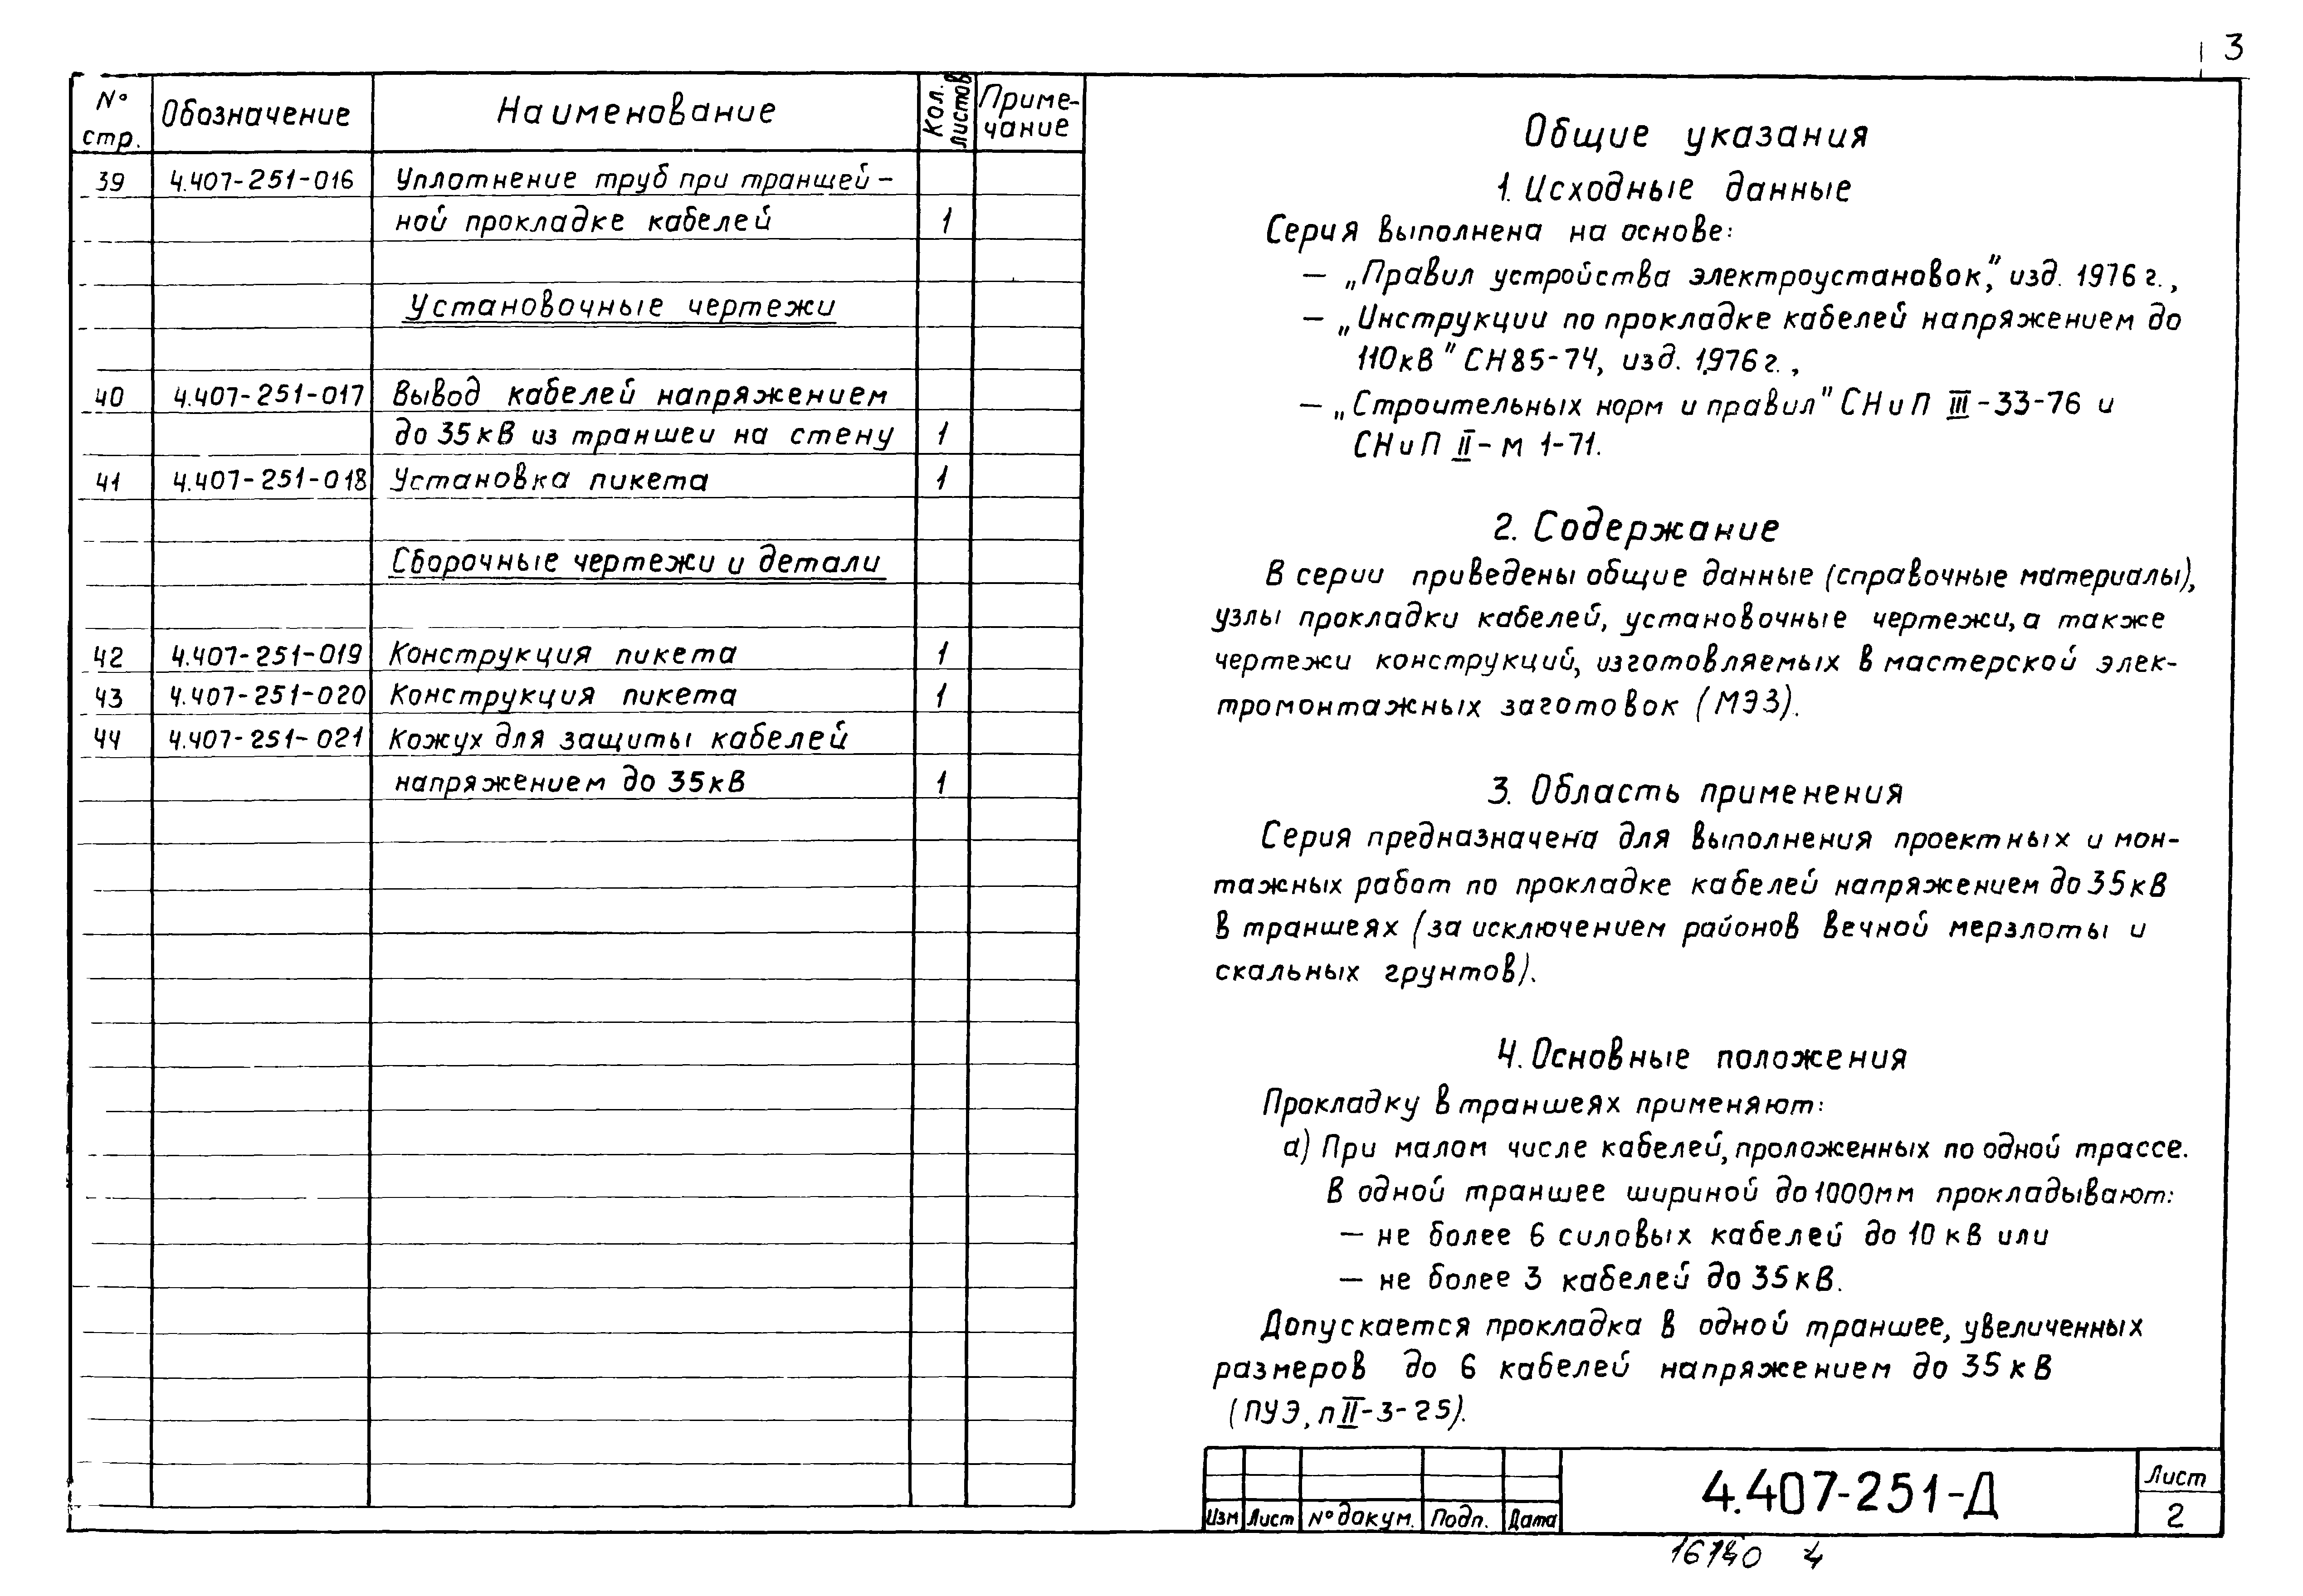 3
№ стр. Обозначение Наименование Кол. листов Примечание
39 4.407-251-016 Уплотнение труб при траншей-
ной прокладке кабелей 1
Установочные чертежи
40 4.407-251-017 Вывод кабелей напряжением
до 35кВ из траншеи на стену 1
41 4.407-251-018 Установка пикета 1
Сборочные чертежи и детали
42 4.407-251-019 Конструкция пикета 1
43 4.407-251-020 Конструкция пикета 1
44 4.407-251-021 Кожух для защиты кабелей
напряжением до 35кВ 1
Общие указания
1. Исходные данные
Серия выполнена на основе:
— „Правил устройства электроустановок", изд. 1976г.,
— „Инструкции по прокладке кабелей напряжением до
110кВ" СН85-74, изд. 1976г.,
— „Строительных норм и правил" СНиП III-33-76 и
СНиП II-М 1-71.
2. Содержание
В серии приведены общие данные (справочные материалы),
узлы прокладки кабелей, установочные чертежи, а также
чертежи конструкций, изготовляемых в мастерской элек-
тромонтажных заготовок (МЭЗ).
3. Область применения
Серия предназначена для выполнения проектных и мон-
тажных работ по прокладке кабелей напряжением до 35кВ
в траншеях (за исключением районов вечной мерзлоты и
скальных грунтов).
4. Основные положения
Прокладку в траншеях применяют:
а) При малом числе кабелей, проложенных по одной трассе.
В одной траншее шириной до 1000мм прокладывают:
— не более 6 силовых кабелей до 10 кВ или
— не более 3 кабелей до 35кВ.
Допускается прокладка в одной траншее, увеличенных
размеров до 6 кабелей напряжением до 35кВ
(ПУЭ, п II-3-25).
Изм Лист № докум. Подп. Дата
4.407-251-Д
Лист
2
4